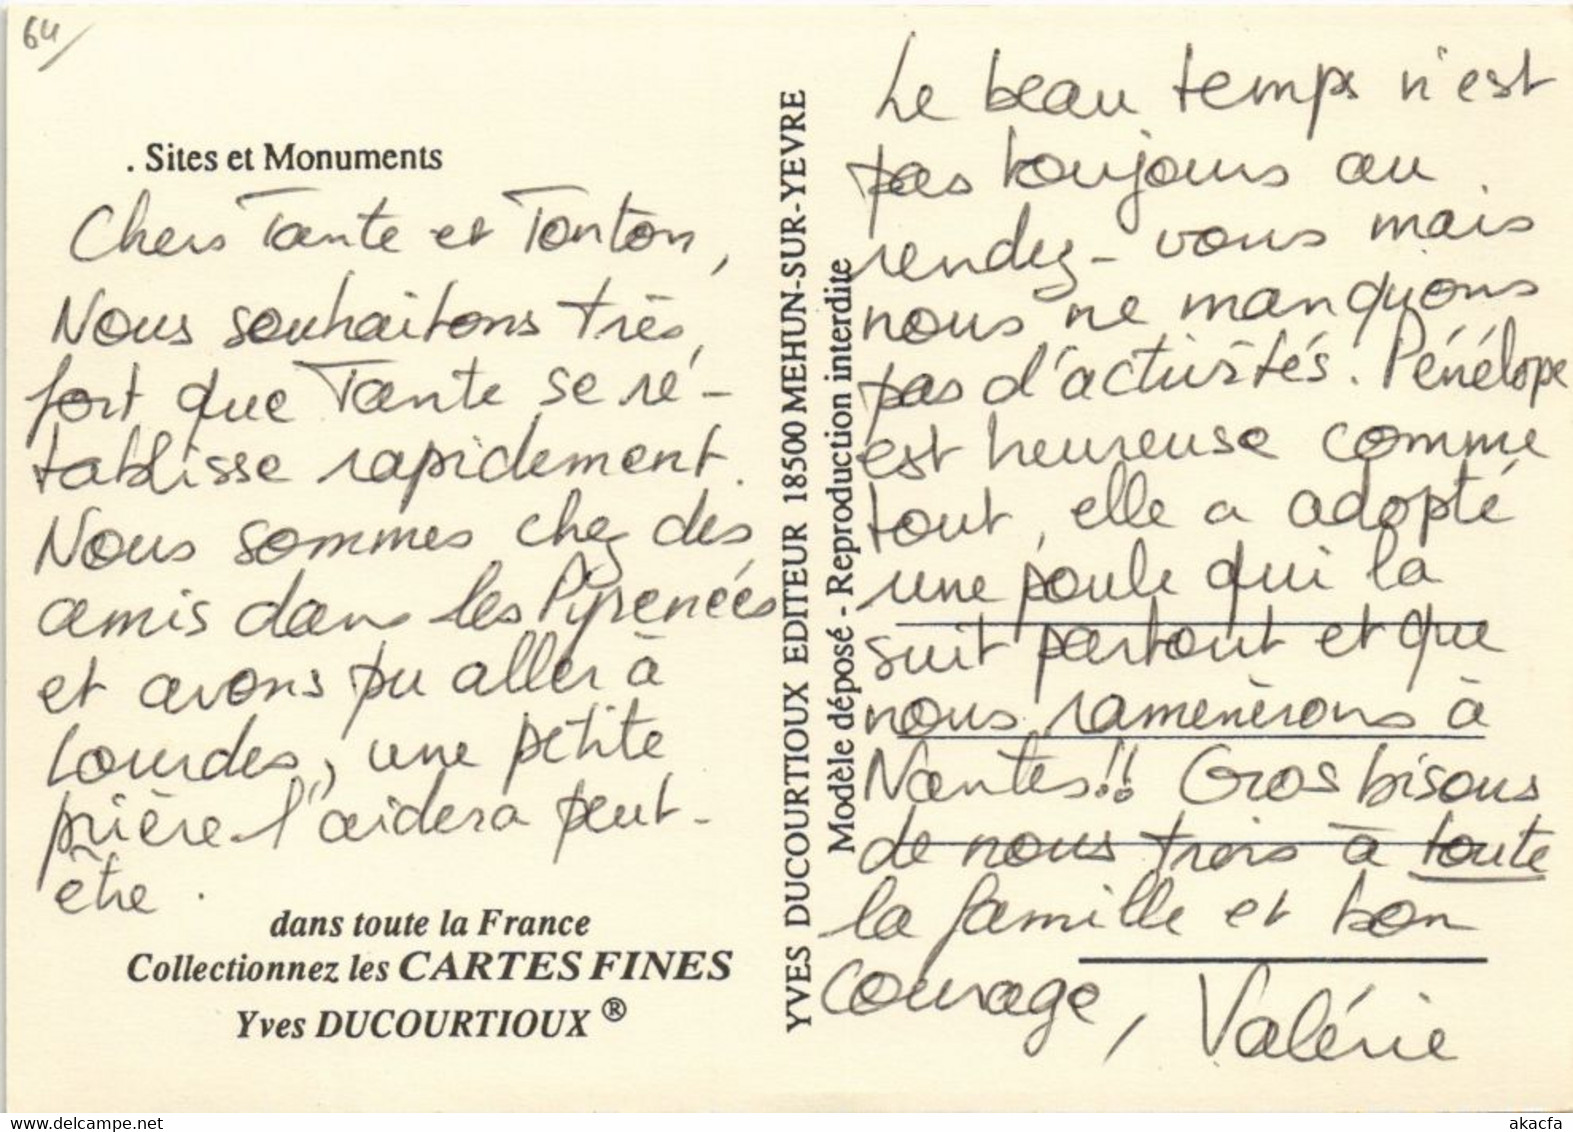 64
. Sites et Monuments
Chers Tante et Tonton,
Nous souhaitons très
fort que Tante se ré-
tablisse rapidement.
Nous sommes chez des
amis dans les Pyrenées
et avons pu aller à
Lourdes, une petite
prière l'aidera peut-
être.
dans toute la France
Collectionnez les CARTES FINES
Yves DUCOURTIOUX ®
YVES DUCOURTIOUX EDITEUR 18500 MEHUN-SUR-YEVRE
Modèle déposé - Reproduction interdite
Le beau temps n'est
pas toujours au
rendez-vous mais
nous ne manquons
pas d'activités. Pénélope
est heureuse comme
tout, elle a adopté
une poule qui la
suit partout et que
nous ramenèrons à
Nantes!! Gros bisous
de nous trois à toute
la famille et bon
courage, Valérie
delcampe.net
akacfa